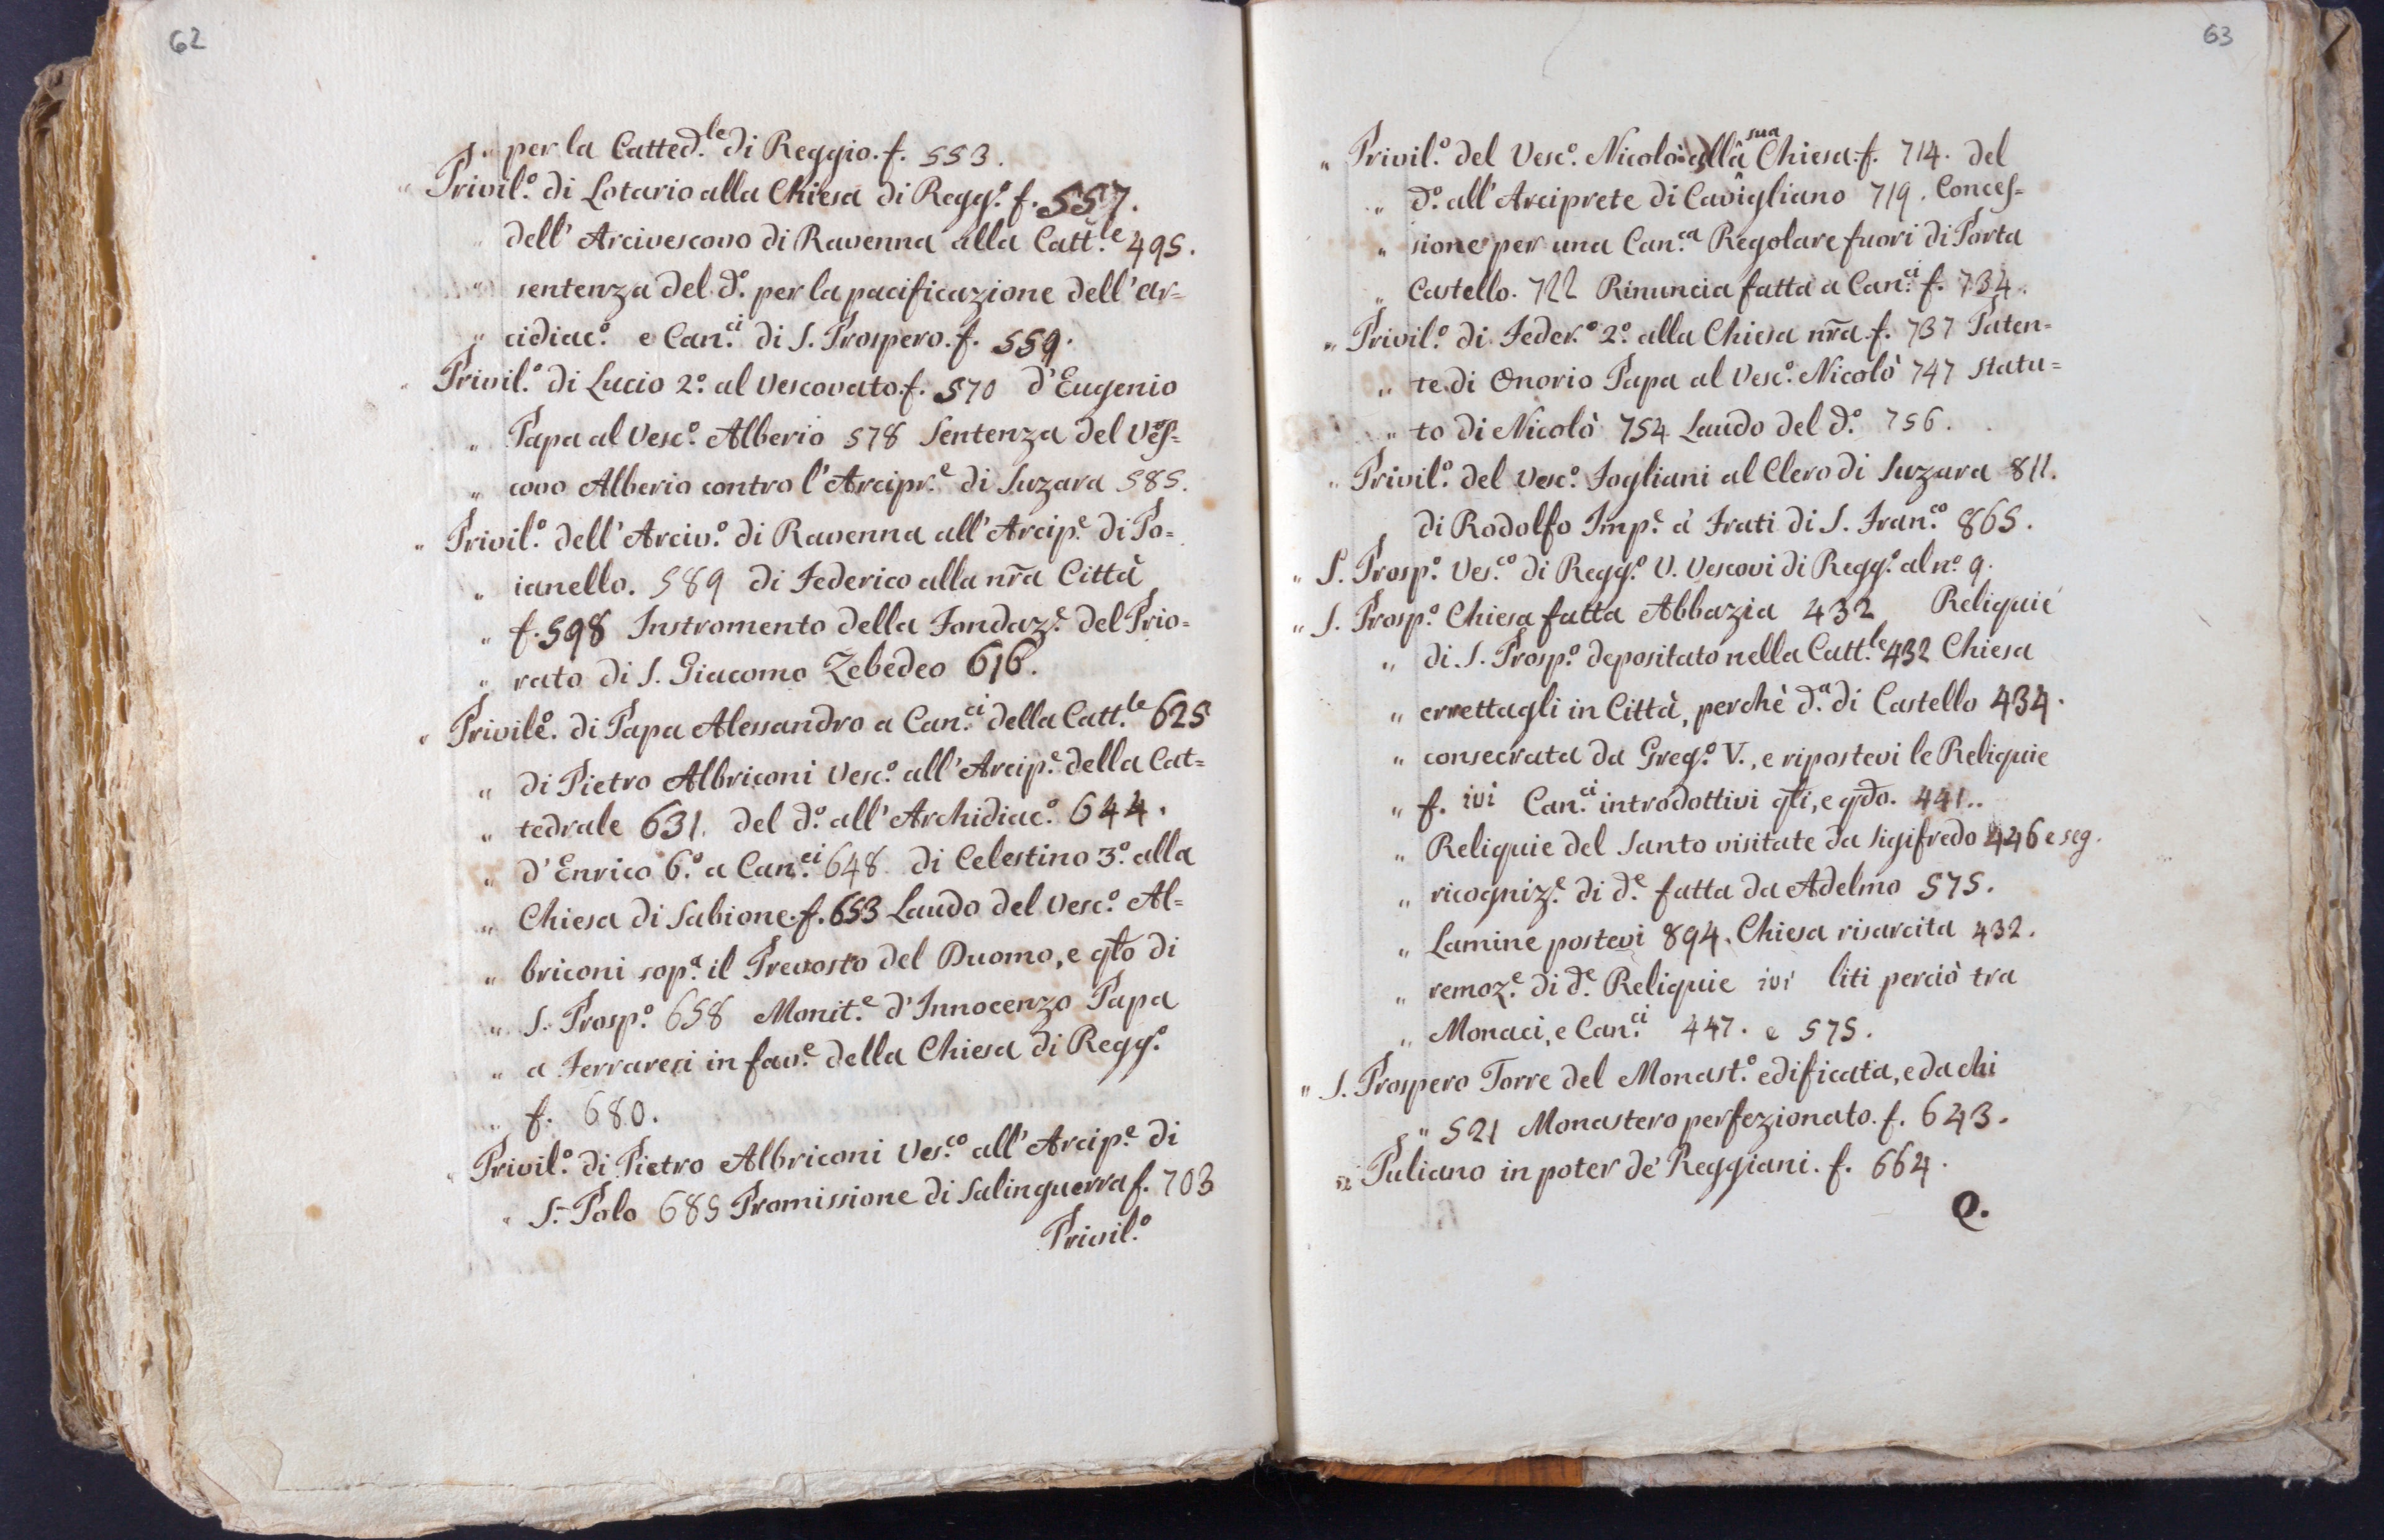 62
„ per la Catted.le di Reggio. f. 553.
„ Privil.o di Lotario alla Chiesa di Regg.o f. 557.
„ dell' Arcivescovo di Ravenna alla Catt.le 495.
„ sentenza del d.o per la pacificazione dell' ar=
„ cidiac.o e Can.ci di S. Prospero. f. 559.
„ Privil.o di Lucio 2.o al Vescovato. f. 570 d'Eugenio
„ Papa al Vesc.o Alberio 578 Sentenza del Ves=
„ covo Alberio contro l'Arcipr.e di Suzara 585.
„ Privil.o dell' Arciv.o di Ravenna all' Arcip.e di Po=
„ ianello. 589 di Federico alla nr̃a Città
„ f. 598 Instromento della Fondaz.e del Prio=
„ rato di S. Giacomo Zebedeo 616.
„ Privile.o di Papa Alessandro a Can.ci della Catt.le 625
„ di Pietro Albriconi Vesc.o all' Arcip.e della Cat=
„ tedrale 631. del d.o all' Archidiac.o 644.
„ d'Enrico 6.o a Can.ci 648 di Celestino 3.o alla
„ Chiesa di Sabione. f. 653 Laudo del Vesc.o Al=
„ briconi sop.a il Prevosto del Duomo, e qt̃o di
„ S. Prosp.o 658 Monit.e d'Innocenzo Papa
„ a Ferraresi in fav.e della Chiesa di Regg.o
„ f. 680.
„ Privil.o di Pietro Albriconi Ves.co all' Arcip.e di
„ S. Polo 685 Promissione di Salinguerra f. 703
Privil.o
63
„ Privil.o del Vesc.o Nicolò alla sua Chiesa. f. 714. del
„ d.o all' Arciprete di Cavigliano 719. Conces=
„ sione per una Can.ca Regolare fuori di Porta
„ Castello. 722 Rinuncia fatta a Can.ci f. 734.
„ Privil.o di Feder.o 2.o alla Chiesa nr̃a. f. 737 Paten=
„ te di Onorio Papa al Vesc.o Nicolò 747 statu=
„ to di Nicolò 754 Laudo del d.o 756.
„ Privil.o del Vesc.o Fogliani al Clero di Suzara 811.
„ di Rodolfo Imp.e à Frati di S. Fran.co 865.
„ S. Prosp.o Ves.co di Regg.o V. Vescovi di Regg.o al n.o 9.
„ S. Prosp.o Chiesa fatta Abbazia 432 Reliquie
„ di S. Prosp.o depositato nella Catt.le 432 Chiesa
„ errettagli in Città, perchè d.a di Castello 434.
„ consecrata da Greg.o V., e ripostevi le Reliquie
„ f. ivi Can.ci introdottivi qt̃i, e qd̃o. 441..
„ Reliquie del Santo visitate da Sigifredo 446 e seg.
„ ricogniz.e di d.e fatta da Adelmo 575.
„ Lamine postevi 894. Chiesa risarcita 432.
„ remoz.e di d.e Reliquie ivi liti perciò tra
„ Monaci, e Can.ci 447. e 575.
„ S. Prospero Torre del Monast.o edificata, e da chi
„ 521 Monastero perfezionato. f. 643.
„ Puliano in poter de' Reggiani. f. 664.
Q.